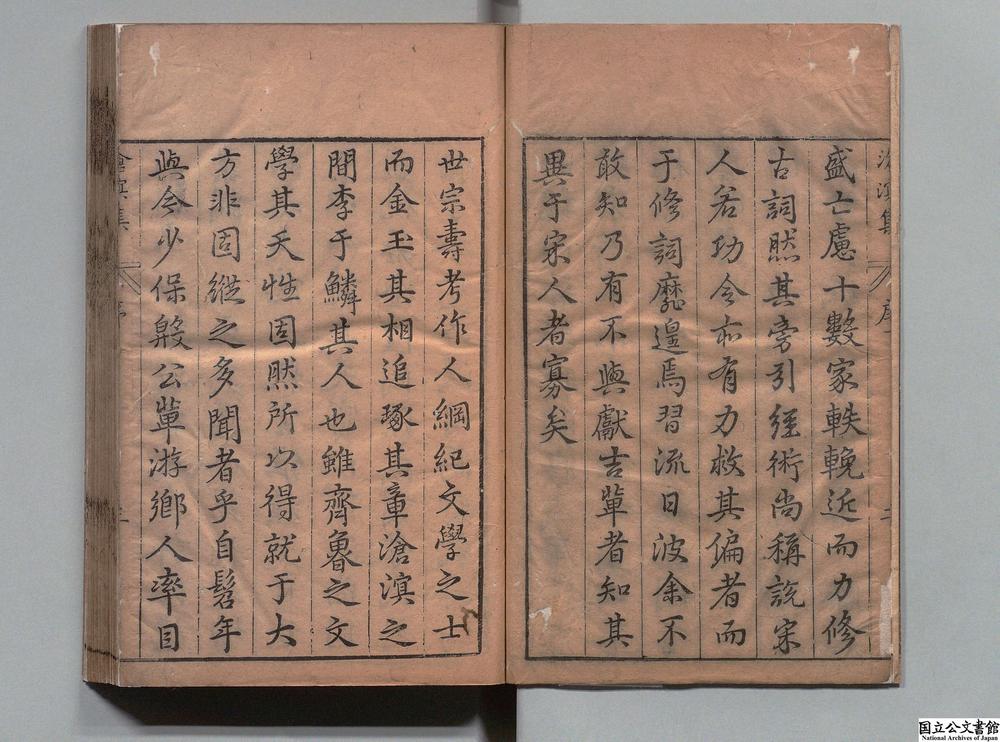 盛亡慮十數家軼輓近而力修
古詞然其旁引經術尚稱說宋
人若功令亦有力救其偏者而
于修詞靡遑焉習流日波余不
敢知乃有不與獻吉輩者知其
異于宋人者寡矣
世宗壽考作人綱紀文學之士
而金玉其相追琢其章滄溟之
間李于鱗其人也雖齊魯之文
學其天性固然所以得就于大
方非固縱之多聞者乎自髫年
與今少保殷公輩游鄉人率目
滄溟集
序
二
國立公文書館
National Archives of Japan